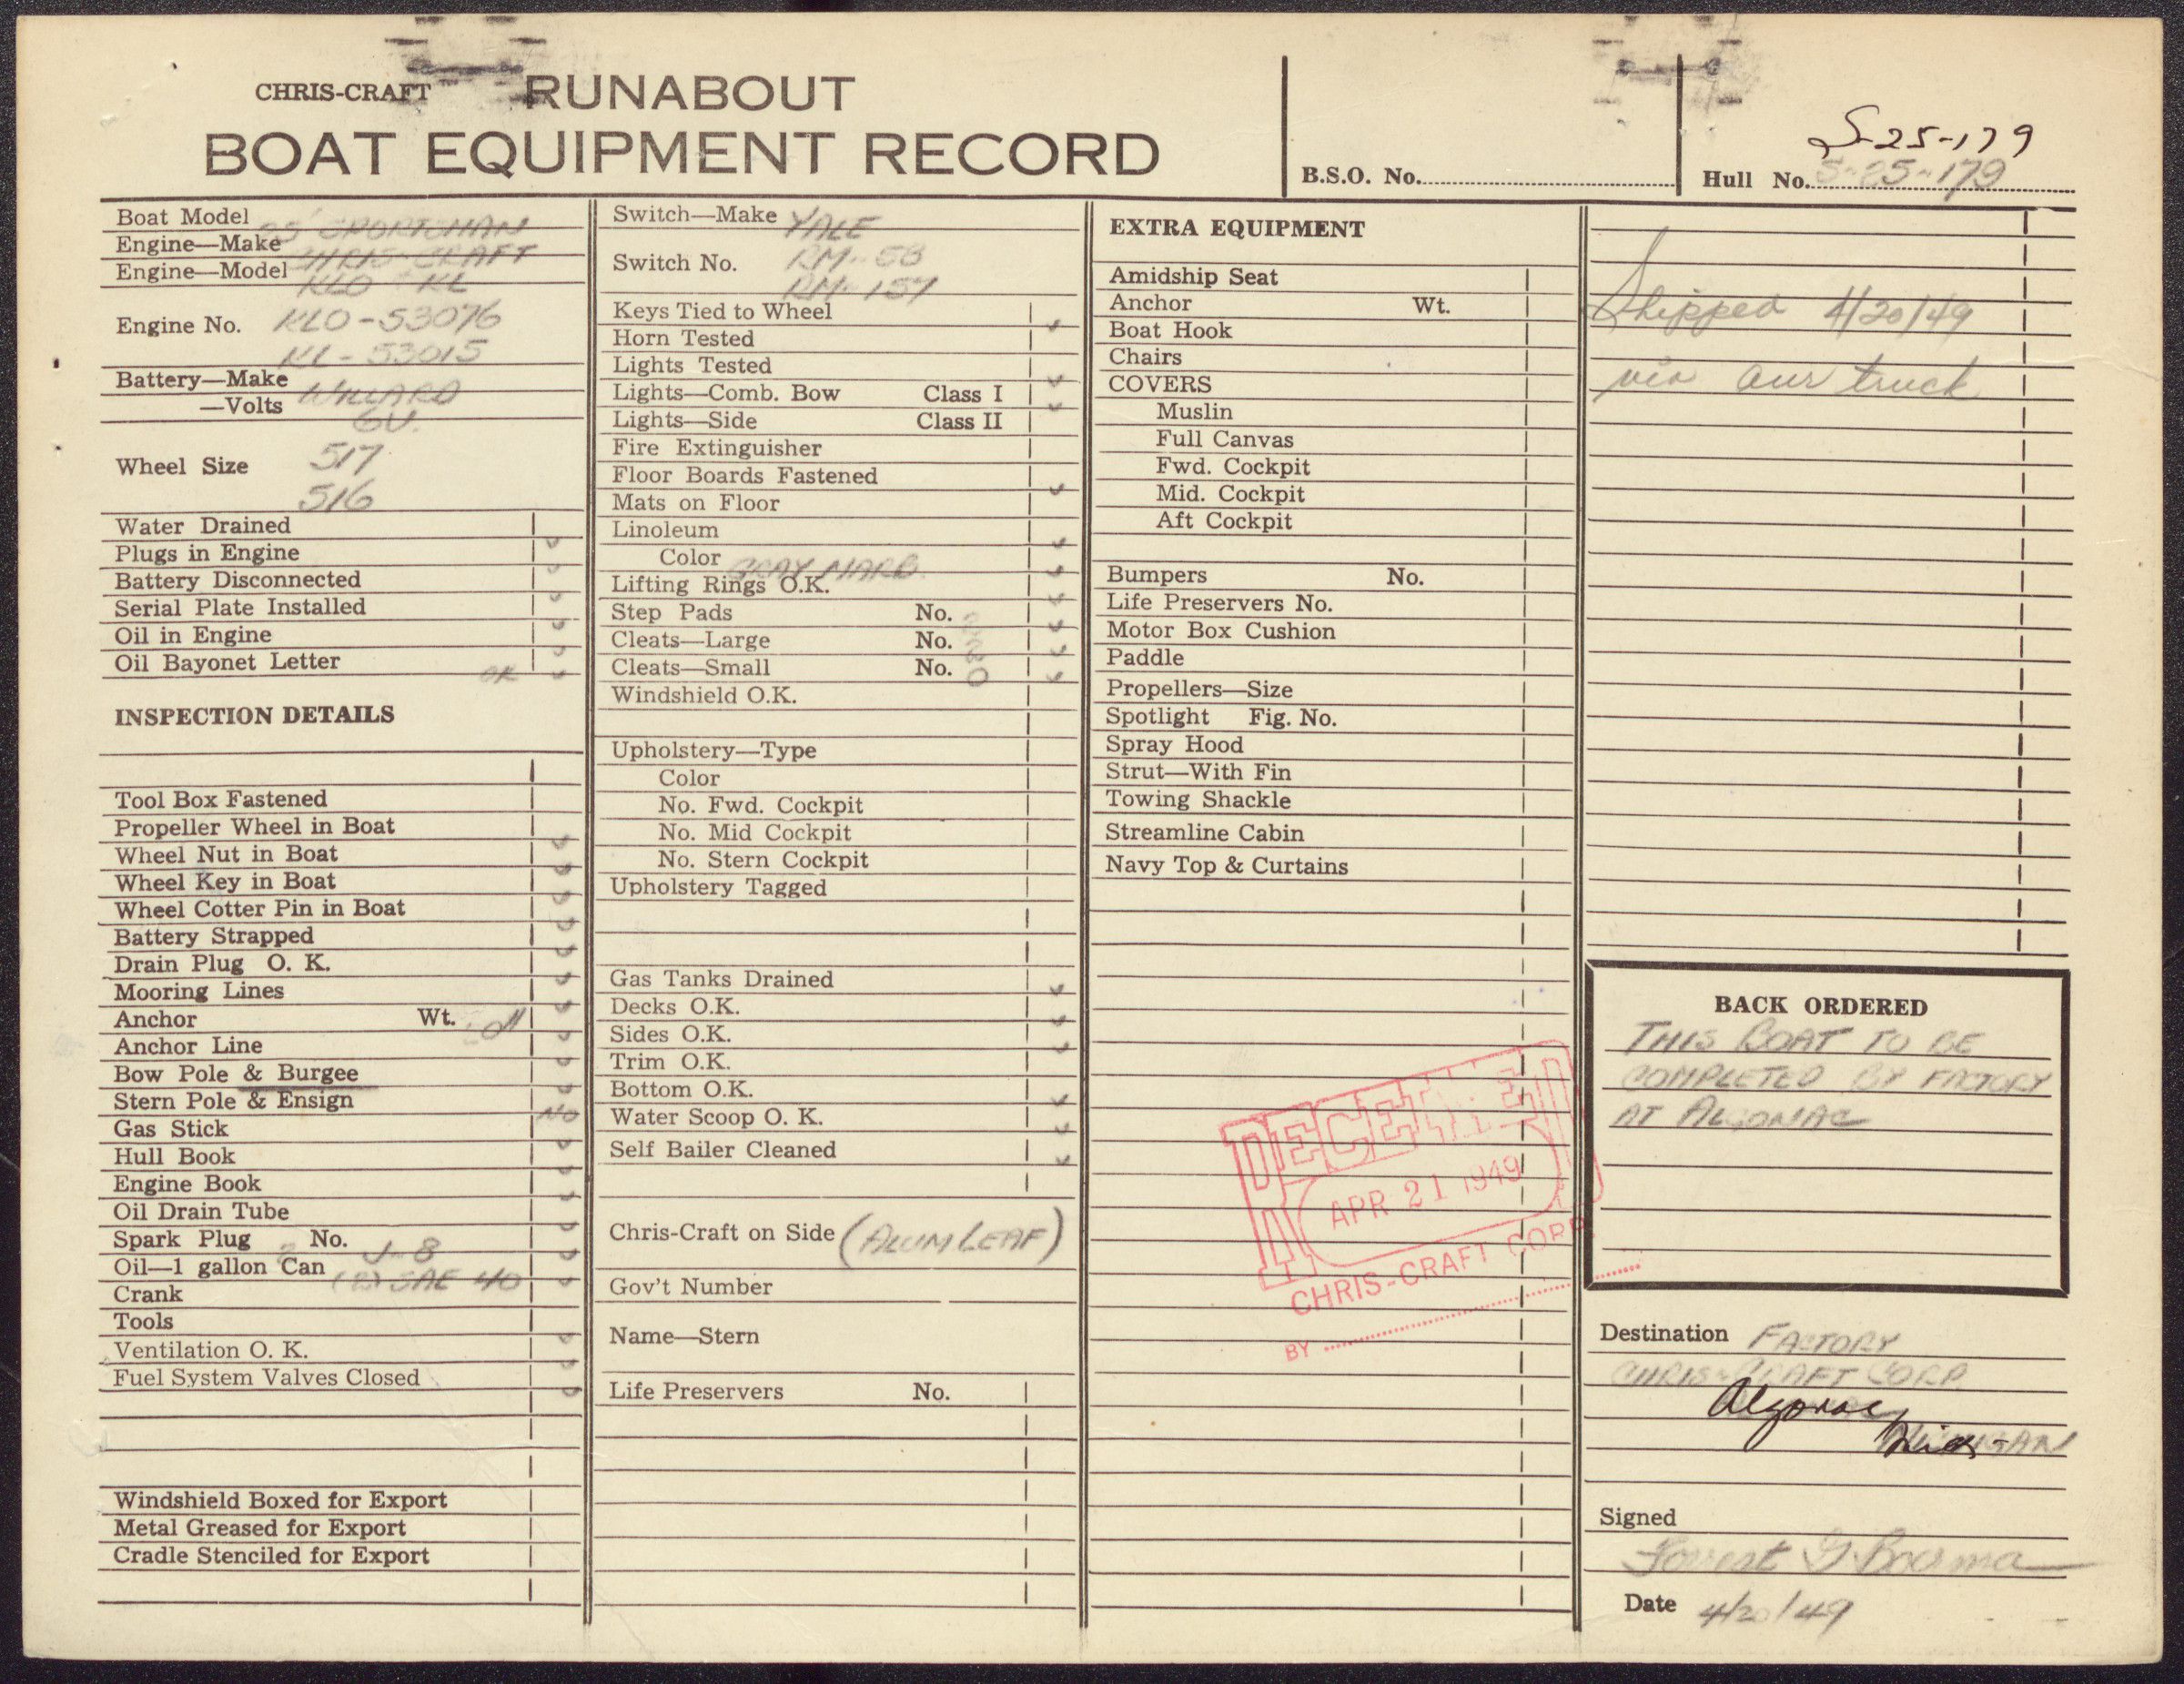 CHRIS-CRAFT RUNABOUT
BOAT EQUIPMENT RECORD
B.S.O. No.
S-25-179
Hull No. S-25-179
Boat Model 25' SPORTSMAN
Engine—Make CHRIS-CRAFT
Engine—Model KLO + KL
Engine No. KLO-53076
KL-53015
Battery—Make WILLARD
—Volts 6V.
Wheel Size 517
516
Water Drained
Plugs in Engine
Battery Disconnected
Serial Plate Installed
Oil in Engine
Oil Bayonet Letter OK
INSPECTION DETAILS
Tool Box Fastened
Propeller Wheel in Boat
Wheel Nut in Boat
Wheel Key in Boat
Wheel Cotter Pin in Boat
Battery Strapped
Drain Plug O. K.
Mooring Lines
Anchor Wt.
Anchor Line
Bow Pole & Burgee
Stern Pole & Ensign NO
Gas Stick
Hull Book
Engine Book
Oil Drain Tube
Spark Plug No. J-8
Oil—1 gallon Can (2) SAE 40
Crank
Tools
Ventilation O. K.
Fuel System Valves Closed
Windshield Boxed for Export
Metal Greased for Export
Cradle Stenciled for Export
Switch—Make YALE
Switch No. RM-58
RM-157
Keys Tied to Wheel
Horn Tested
Lights Tested
Lights—Comb. Bow Class I
Lights—Side Class II
Fire Extinguisher
Floor Boards Fastened
Mats on Floor
Linoleum
Color GRAY MARB.
Lifting Rings O.K.
Step Pads No.
Cleats—Large No.
Cleats—Small No.
Windshield O.K.
Upholstery—Type
Color
No. Fwd. Cockpit
No. Mid Cockpit
No. Stern Cockpit
Upholstery Tagged
Gas Tanks Drained
Decks O.K.
Sides O.K.
Trim O.K.
Bottom O.K.
Water Scoop O. K.
Self Bailer Cleaned
Chris-Craft on Side (ALUM LEAF)
Gov't Number
Name—Stern
Life Preservers No.
EXTRA EQUIPMENT
Amidship Seat
Anchor Wt.
Boat Hook
Chairs
COVERS
Muslin
Full Canvas
Fwd. Cockpit
Mid. Cockpit
Aft Cockpit
Bumpers No.
Life Preservers No.
Motor Box Cushion
Paddle
Propellers—Size
Spotlight Fig. No.
Spray Hood
Strut—With Fin
Towing Shackle
Streamline Cabin
Navy Top & Curtains
RECEIVED
APR 21 1949
CHRIS-CRAFT CORP
BY
Shipped 4/20/49
via our truck
BACK ORDERED
THIS BOAT TO BE
COMPLETED BY FACTORY
AT ALGONAC
Destination FACTORY
CHRIS-CRAFT CORP.
Algonac
Mich-
MICHIGAN
Signed
Forrest G Bosma
Date 4/20/49